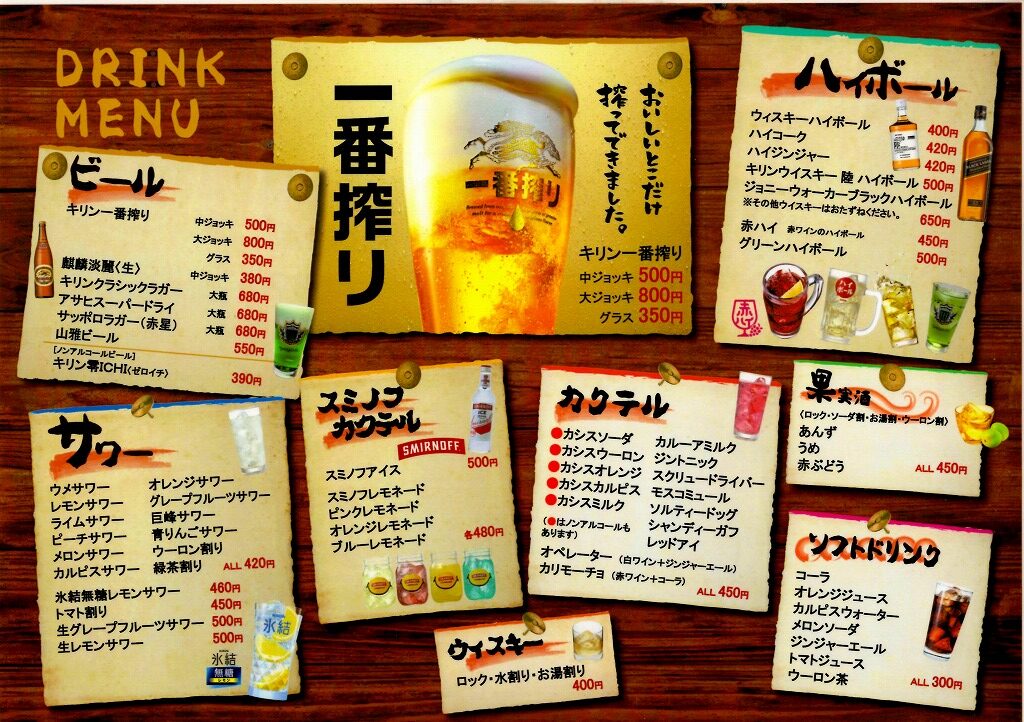 DRINK
MENU
一番搾り
おいしいとこだけ
搾ってできました。
一番搾り
キリン一番搾り
中ジョッキ 500円
大ジョッキ 800円
グラス 350円
ビール
キリン一番搾り
中ジョッキ 500円
大ジョッキ 800円
グラス 350円
麒麟淡麗〈生〉 中ジョッキ 380円
キリンクラシックラガー 大瓶 680円
アサヒスーパードライ 大瓶 680円
サッポロラガー(赤星) 大瓶 680円
山雅ビール 550円
[ノンアルコールビール]
キリン零ICHI(ゼロイチ) 390円
ハイボール
ウィスキーハイボール 400円
ハイコーク 420円
ハイジンジャー 420円
キリンウイスキー 陸 ハイボール 500円
ジョニーウォーカーブラックハイボール 650円
※その他ウイスキーはおたずねください。
赤ハイ 赤ワインのハイボール 450円
グリーンハイボール 500円
赤ハイ
ハイボール
サワー
ウメサワー オレンジサワー
レモンサワー グレープフルーツサワー
ライムサワー 巨峰サワー
ピーチサワー 青りんごサワー
メロンサワー ウーロン割り
カルピスサワー 緑茶割り ALL 420円
氷結無糖レモンサワー 460円
トマト割り 450円
生グレープフルーツサワー 500円
生レモンサワー 500円
氷結
無糖
レモン
氷結
スミノフ
カクテル
SMIRNOFF
スミノフアイス 500円
スミノフレモネード
ピンクレモネード
オレンジレモネード
ブルーレモネード 各480円
カクテル
●カシスソーダ カルーアミルク
●カシスウーロン ジントニック
●カシスオレンジ スクリュードライバー
●カシスカルピス モスコミュール
●カシスミルク ソルティードッグ
(●はノンアルコールも
あります) シャンディーガフ
レッドアイ
オペレーター (白ワイン+ジンジャーエール)
カリモーチョ (赤ワイン+コーラ)
ALL 450円
果実酒
〈ロック・ソーダ割・お湯割・ウーロン割〉
あんず
うめ
赤ぶどう ALL 450円
ソフトドリンク
コーラ
オレンジジュース
カルピスウォーター
メロンソーダ
ジンジャーエール
トマトジュース
ウーロン茶 ALL 300円
ウィスキー
ロック・水割り・お湯割り
400円